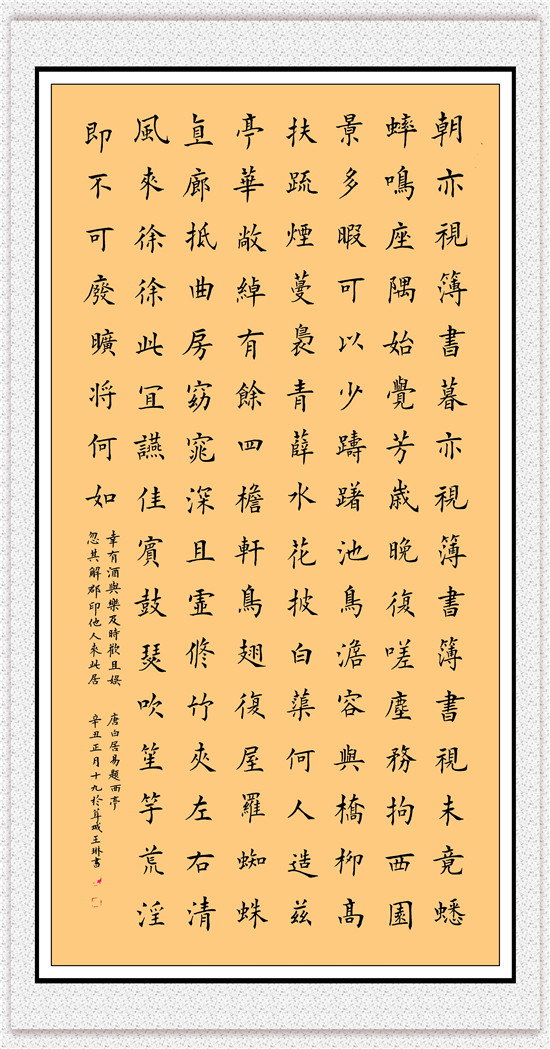 朝亦視簿書暮亦視簿書簿書視未竟蟋
蟀鳴座隅始覺芳歲晚復嗟塵務拘西園
景多暇可以少躊躇池鳥澹容與橋柳高
扶疏煙蔓裊青薜水花披白蕖何人造茲
亭華敞綽有餘四檐軒鳥翅復屋羅蜘蛛
直廊抵曲房窈窕深且虛修竹夾左右清
風來徐徐此宜讌佳賓鼓瑟吹笙竽荒淫
即不可廢曠將何如
幸有酒與樂及時歡且娛
忽其解郡印他人來此居
唐白居易題西亭
辛丑正月十九於茸城王琳書